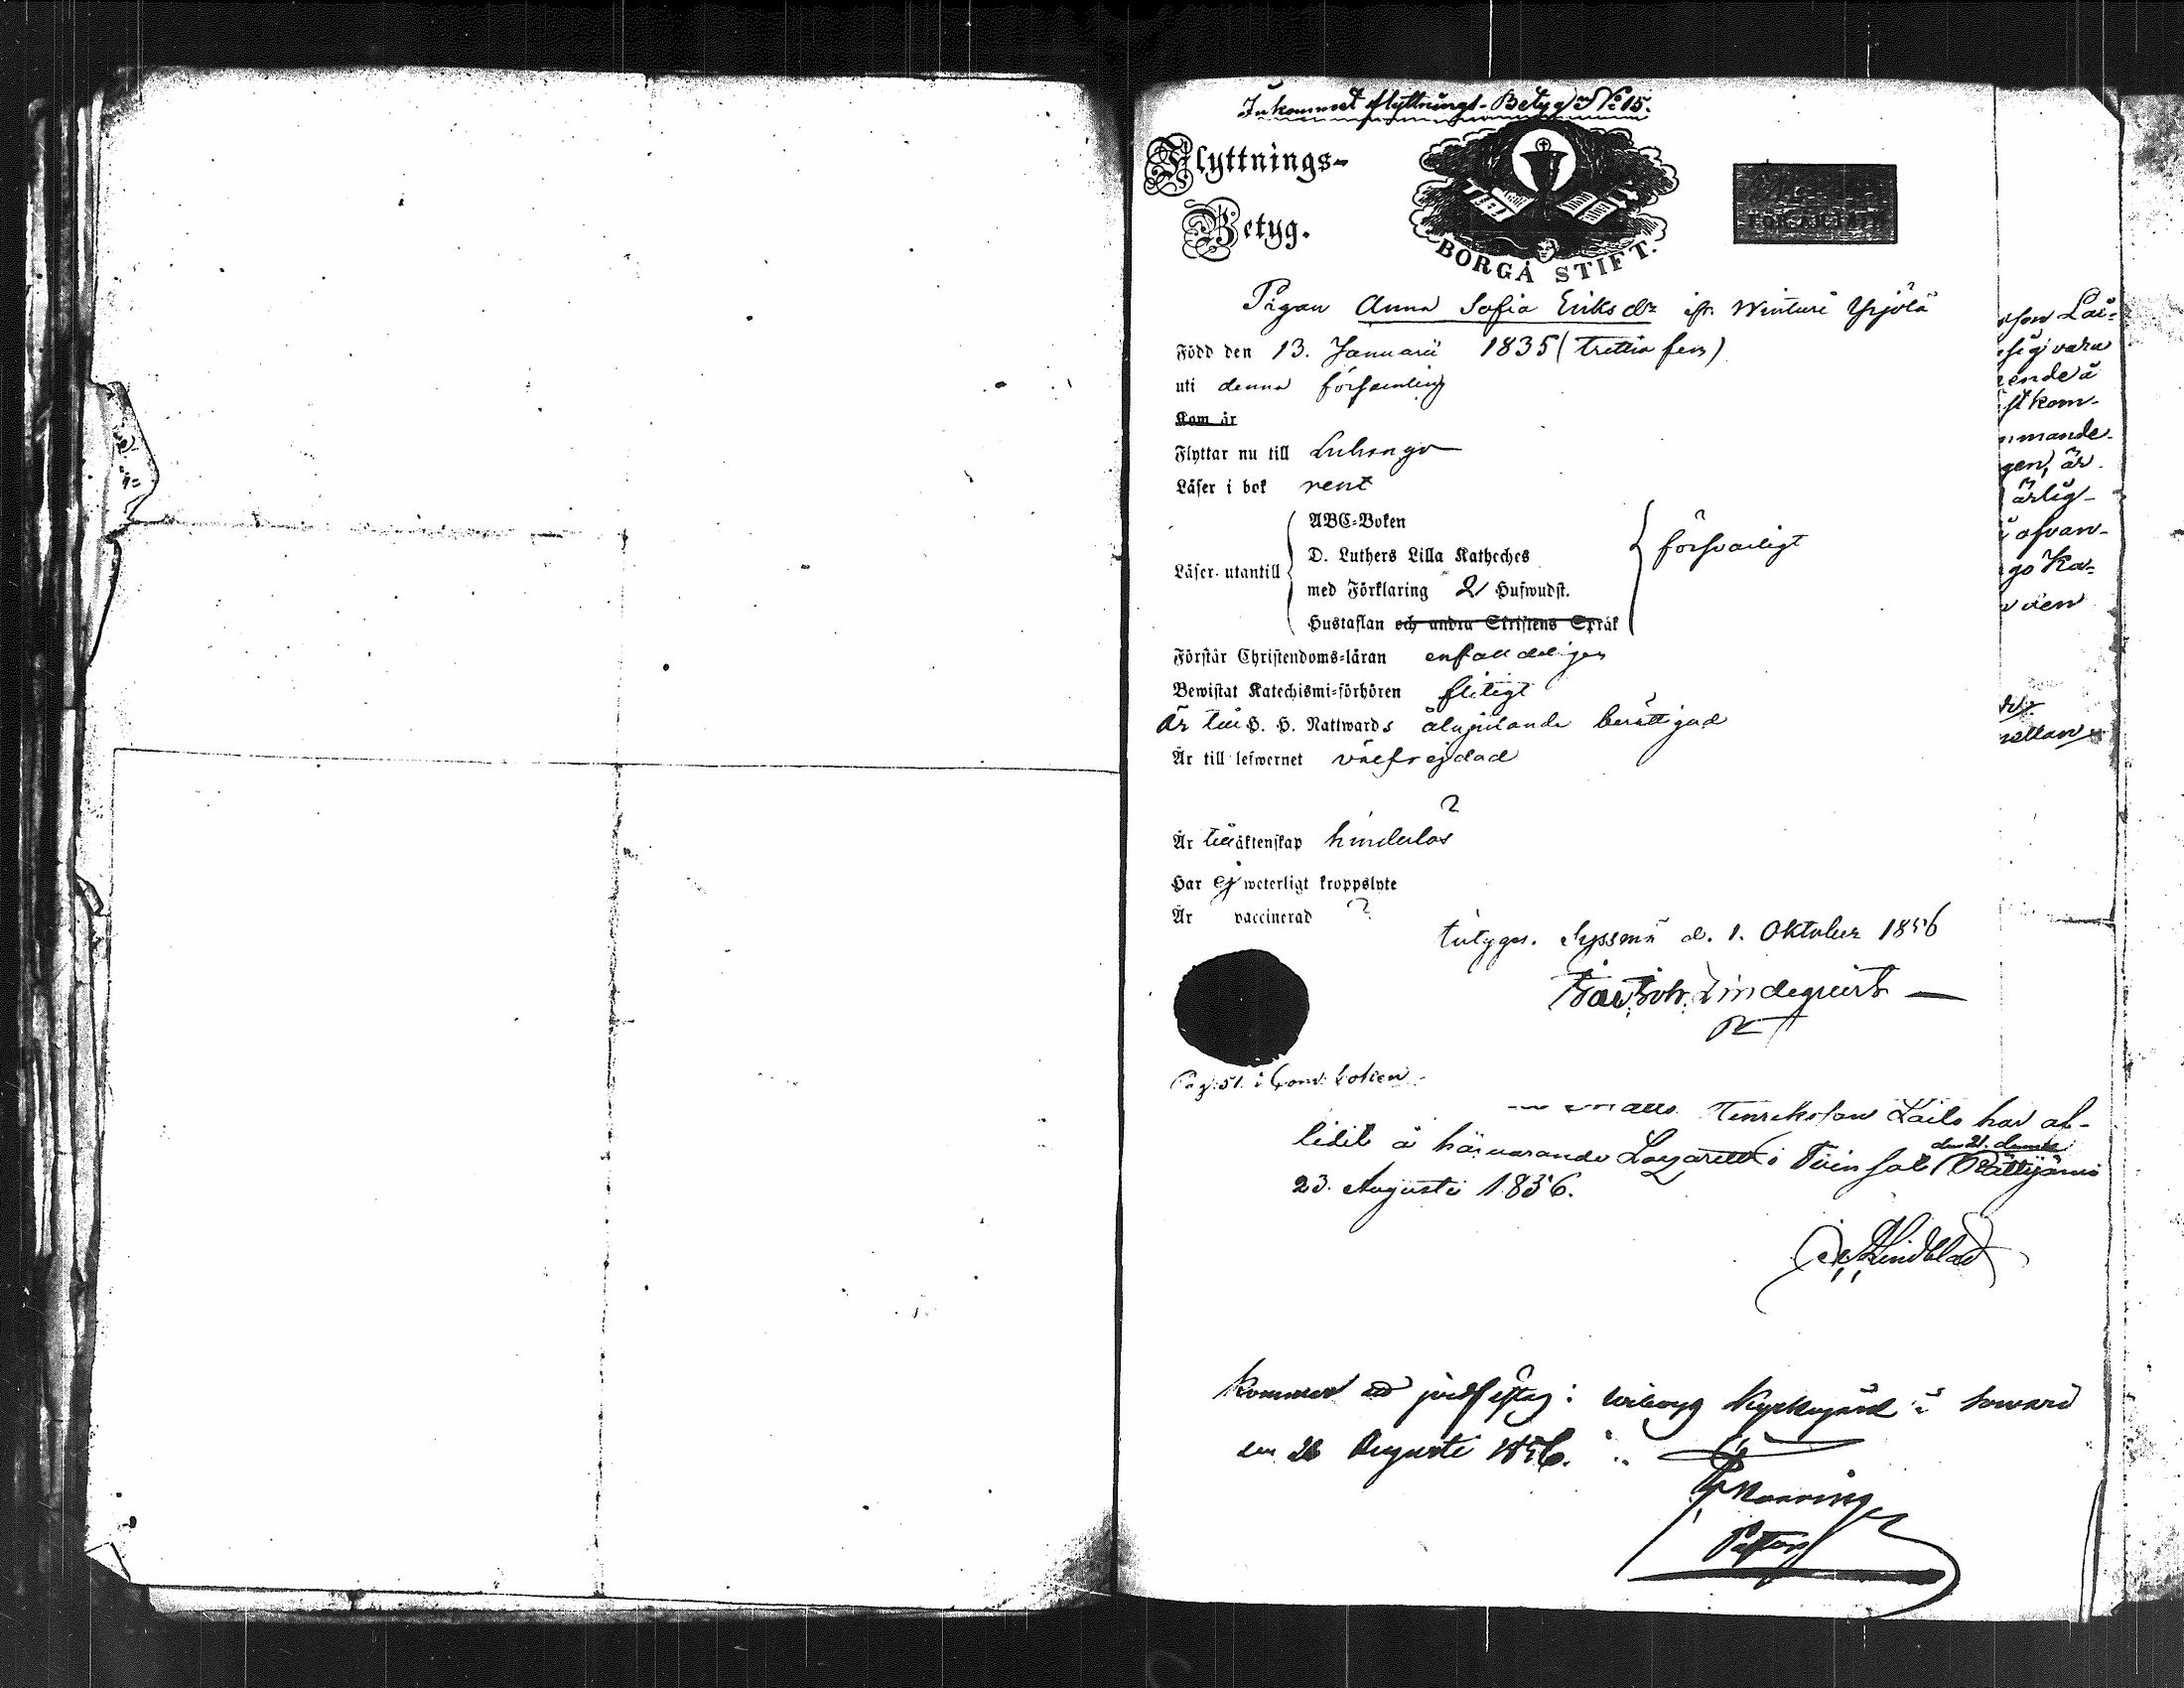 Inkommet flyttnings-Betyg N:o 15.
Flyttnings-
Betyg.
BORGÅ STIFT.
Pigan Anna Sofia Eriksdr ifr. Winturi Yrjölä
Född den 13. Januarii 1835 (trettio fem)
uti denna församling
Kom år
Flyttar nu till Luhango
Läser i bok rent
Läser utantill
ABC-Boken
D. Luthers Lilla Katheches
med Förklaring 2 Hufwudst.
Hustaflan och andra Skriftens Språk
försvarligt
Förstår Christendoms-läran enfalldeligen
Bewistat Katechismi-förhören flitigt
Är till H. H. Nattwards åtnjutande berättigad
Är till lefwernet välfrejdad
Är till äktenskap hinderlös
Har ej weterligt kroppslyte
Är vaccinerad
betygar. Sysmä d. 1. Oktober 1856
Lindequist
Pag. 51. i Com. boken.
Henrikson Laito har af-
lidit å härvarande Lazarett i Tuinsal den 21. dennes
23. Augusti 1856.
Lindblad
kommen att jordfästas i Wiborg Kyrkogård
den 26 Augusti 1856.
Pastor
rson Lai-
sig vara
rende å
st kom-
mmande
gen, är
ärlig-
ofvan-
go Ka-
den